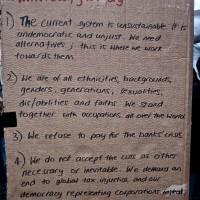 1) The current system is unsustainable. It is
undemocratic and unjust. We need
alternatives; this is where we work
towards them
2) We are of all ethnicities, backgrounds,
genders, generations, sexualities,
dis/abilities and faiths. We stand
together with occupations all over the world
3) We refuse to pay for the banks' crisis
4) We do not accept the cuts as either
necessary or inevitable. We demand an
end to global tax injustice and our
democracy representing corporations instead